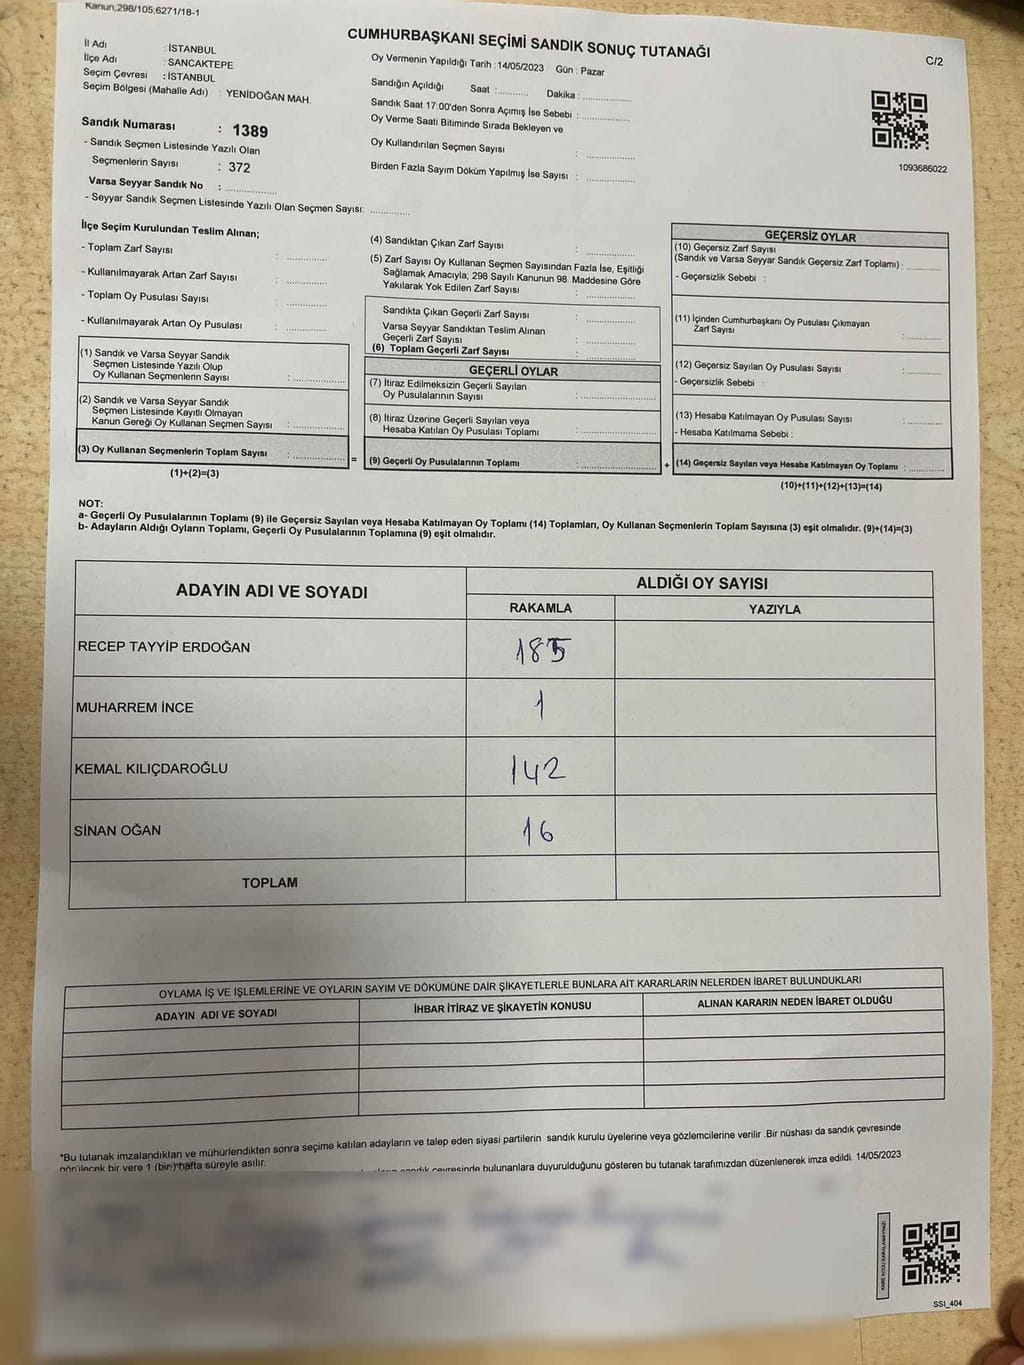 Kanun;298/105;6271/18-1
CUMHURBAŞKANI SEÇİMİ SANDIK SONUÇ TUTANAĞI
C/2
İl Adı : İSTANBUL
İlçe Adı : SANCAKTEPE
Seçim Çevresi : İSTANBUL
Seçim Bölgesi (Mahalle Adı) : YENİDOĞAN MAH.
Sandık Numarası : 1389
- Sandık Seçmen Listesinde Yazılı Olan
Seçmenlerin Sayısı : 372
Varsa Seyyar Sandık No : ..............
- Seyyar Sandık Seçmen Listesinde Yazılı Olan Seçmen Sayısı: ............
Oy Vermenin Yapıldığı Tarih :14/05/2023 Gün : Pazar
Sandığın Açıldığı Saat :........... Dakika : ..............
Sandık Saat 17:00'den Sonra Açımış İse Sebebi : ..............
Oy Verme Saati Bitiminde Sırada Bekleyen ve
Oy Kullandırılan Seçmen Sayısı : ..............
Birden Fazla Sayım Döküm Yapılmış İse Sayısı : ..............
1093686022
İlçe Seçim Kurulundan Teslim Alınan;
- Toplam Zarf Sayısı : ............
- Kullanılmayarak Artan Zarf Sayısı : ............
- Toplam Oy Pusulası Sayısı : ............
- Kullanılmayarak Artan Oy Pusulası : ............
(1) Sandık ve Varsa Seyyar Sandık
Seçmen Listesinde Yazılı Olup
Oy Kullanan Seçmenlerin Sayısı : ..............
(2) Sandık ve Varsa Seyyar Sandık
Seçmen Listesinde Kayıtlı Olmayan
Kanun Gereği Oy Kullanan Seçmen Sayısı : ..............
(3) Oy Kullanan Seçmenlerin Toplam Sayısı : ..............
(1)+(2)=(3)
=
(4) Sandıktan Çıkan Zarf Sayısı : ..............
(5) Zarf Sayısı Oy Kullanan Seçmen Sayısından Fazla İse, Eşitliği
Sağlamak Amacıyla, 298 Sayılı Kanunun 98. Maddesine Göre
Yakılarak Yok Edilen Zarf Sayısı : ..............
Sandıkta Çıkan Geçerli Zarf Sayısı : ..............
Varsa Seyyar Sandıktan Teslim Alınan
Geçerli Zarf Sayısı : ..............
(6) Toplam Geçerli Zarf Sayısı : ..............
GEÇERLİ OYLAR
(7) İtiraz Edilmeksizin Geçerli Sayılan
Oy Pusulalarının Sayısı : ..............
(8) İtiraz Üzerine Geçerli Sayılan veya
Hesaba Katılan Oy Pusulası Toplamı : ..............
(9) Geçerli Oy Pusulalarının Toplamı : ..............
+
GEÇERSİZ OYLAR
(10) Geçersiz Zarf Sayısı
(Sandık ve Varsa Seyyar Sandık Geçersiz Zarf Toplamı) : ..........
- Geçersizlik Sebebi :
(11) İçinden Cumhurbaşkanı Oy Pusulası Çıkmayan
Zarf Sayısı : ..........
(12) Geçersiz Sayılan Oy Pusulası Sayısı : ..........
- Geçersizlik Sebebi :
(13) Hesaba Katılmayan Oy Pusulası Sayısı : ..........
- Hesaba Katılmama Sebebi :
(14) Geçersiz Sayılan veya Hesaba Katılmayan Oy Toplamı : ..........
(10)+(11)+(12)+(13)=(14)
NOT:
a- Geçerli Oy Pusulalarının Toplamı (9) ile Geçersiz Sayılan veya Hesaba Katılmayan Oy Toplamı (14) Toplamları, Oy Kullanan Seçmenlerin Toplam Sayısına (3) eşit olmalıdır. (9)+(14)=(3)
b- Adayların Aldığı Oyların Toplamı, Geçerli Oy Pusulalarının Toplamına (9) eşit olmalıdır.
ADAYIN ADI VE SOYADI
ALDIĞI OY SAYISI
RAKAMLA YAZIYLA
RECEP TAYYİP ERDOĞAN 185
MUHARREM İNCE 1
KEMAL KILIÇDAROĞLU 142
SİNAN OĞAN 16
TOPLAM
OYLAMA İŞ VE İŞLEMLERİNE VE OYLARIN SAYIM VE DÖKÜMÜNE DAİR ŞİKAYETLERLE BUNLARA AİT KARARLARIN NELERDEN İBARET BULUNDUKLARI
ADAYIN ADI VE SOYADI İHBAR İTİRAZ VE ŞİKAYETİN KONUSU ALINAN KARARIN NEDEN İBARET OLDUĞU
*Bu tutanak imzalandıktan ve mühürlendikten sonra seçime katılan adayların ve talep eden siyasi partilerin sandık kurulu üyelerine veya gözlemcilerine verilir .Bir nüshası da sandık çevresinde
görülecek bir yere 1 (bir) hafta süreyle asılır.
sandık çevresinde bulunanlara duyurulduğunu gösteren bu tutanak tarafımızdan düzenlenerek imza edildi. 14/05/2023
KARE KODU KARALAMAYINIZ!
SSI_404